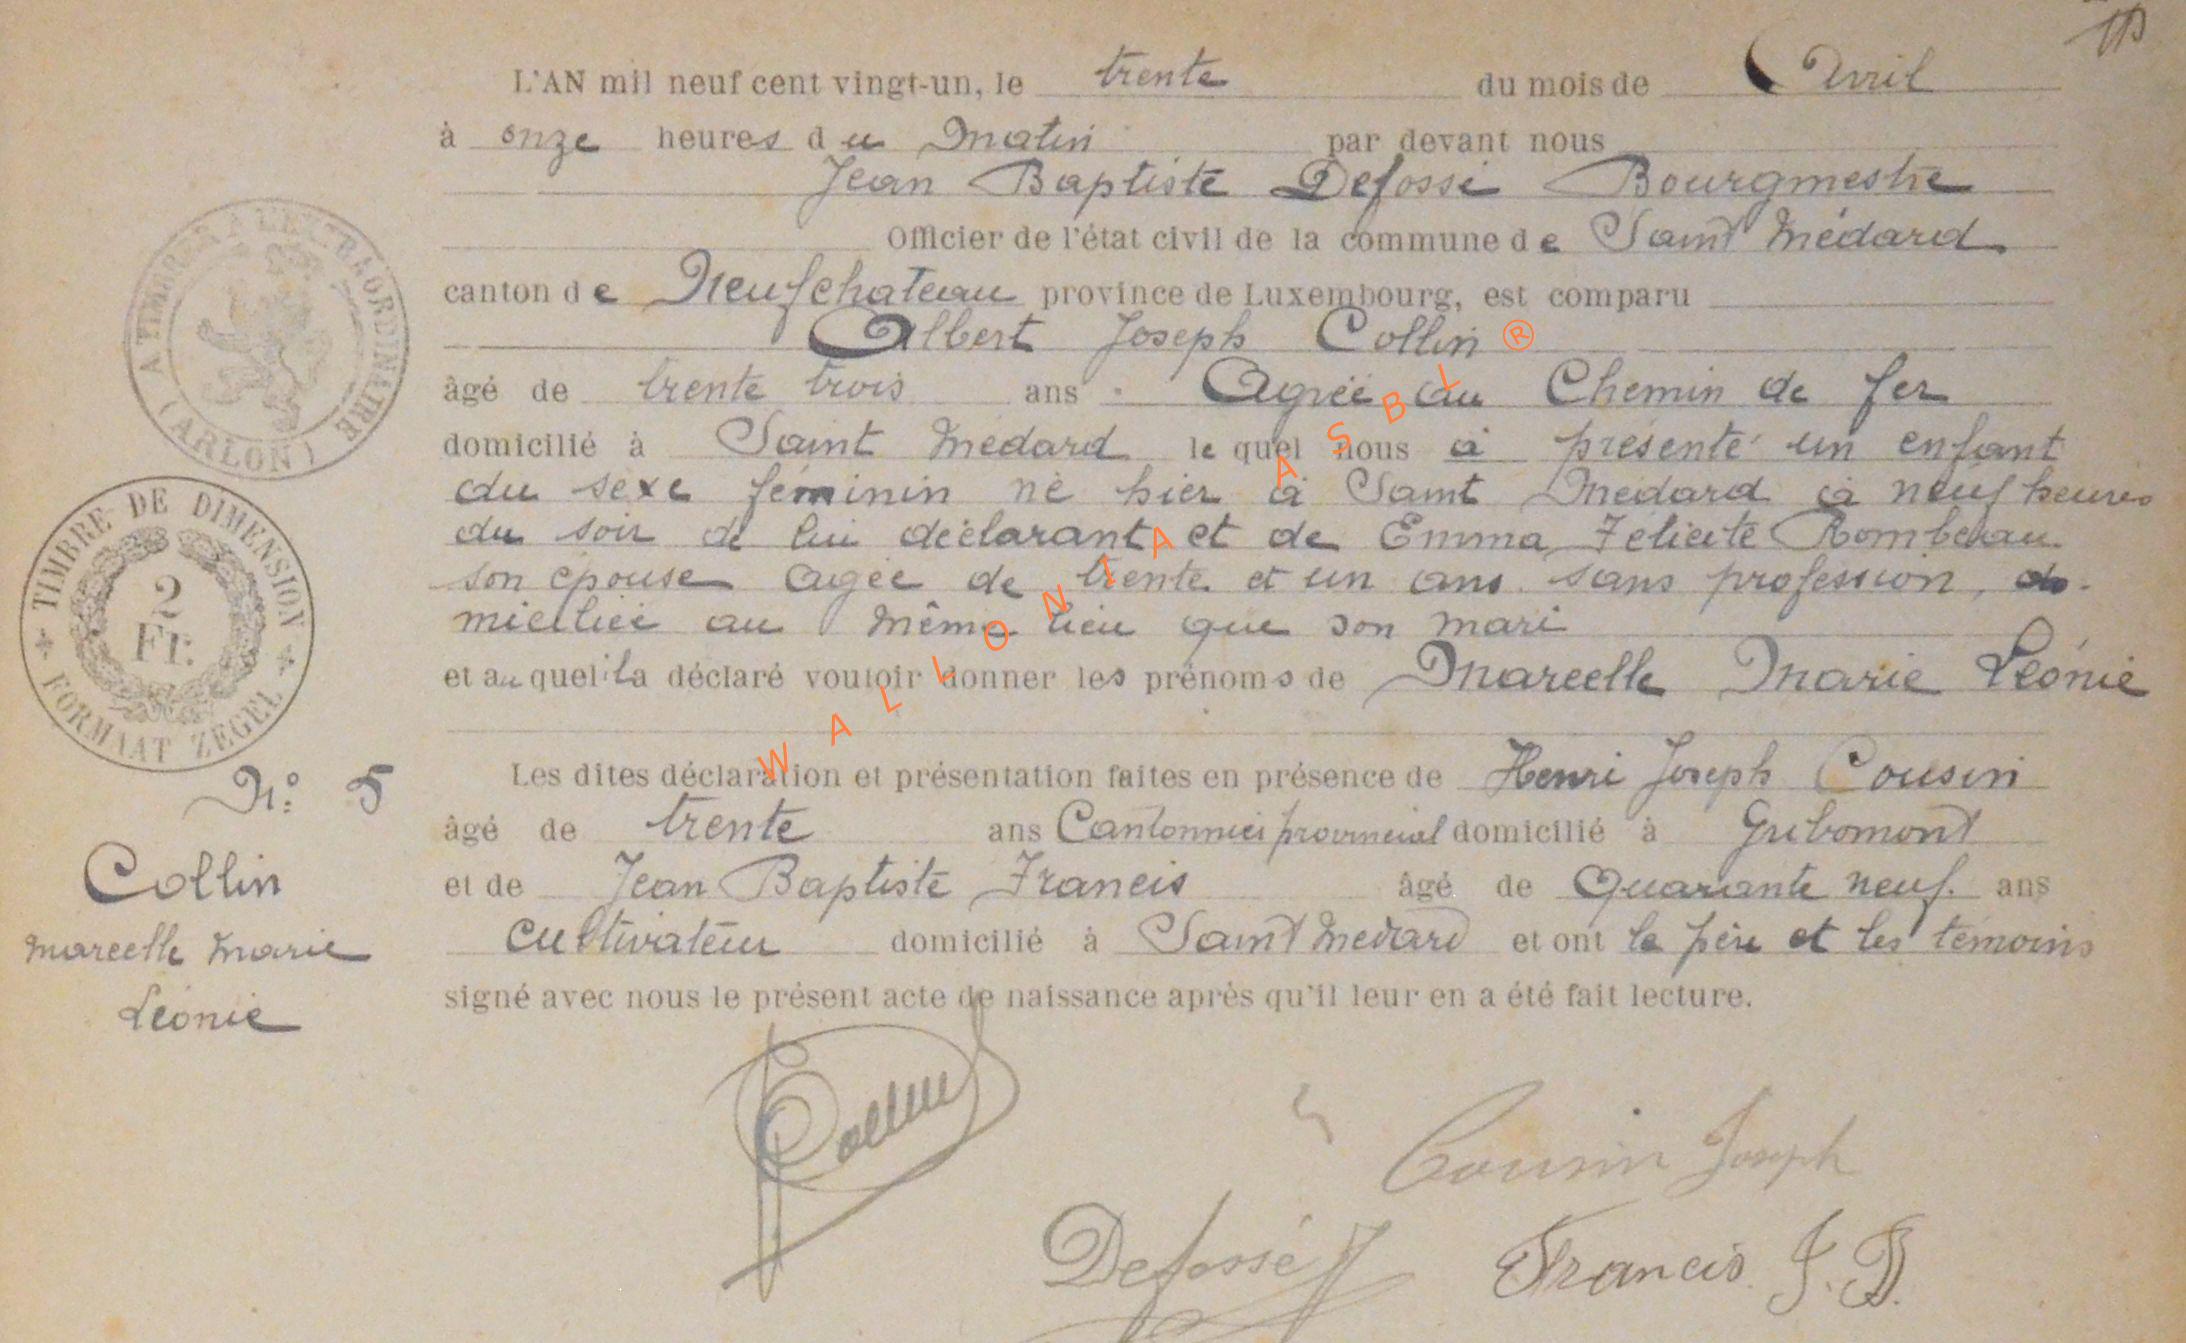 L'AN mil neuf cent vingt-un, le trente du mois de Avril
à onze heures du Matin par devant nous
Jean Baptiste Defossé Bourgmestre
Officier de l'état civil de la commune de Saint Médard
canton de Neufchateau province de Luxembourg, est comparu
Albert Joseph Collin
âgé de trente trois ans Agréé au Chemin de fer
domicilié à Saint Médard le quel nous à présenté un enfant
du sexe féminin né hier à Saint Médard à neuf heures
du soir de lui déclarant et de Emma Félicité Rombeaau
son épouse agée de trente et un ans sans profession, do-
miciliée au même lieu que son mari
et auquel il a déclaré vouloir donner les prénoms de Marcelle Marie Léonie
Les dites déclaration et présentation faites en présence de Henri Joseph Cousin
âgé de trente ans Cantonnier provincial domicilié à Gribomont
et de Jean Baptiste Francis âgé de Quarante neuf ans
cultivateur domicilié à Saint Médard et ont le père et les témoins
signé avec nous le présent acte de naissance après qu'il leur en a été fait lecture.
A TIMBRER A L'EXTRAORDINAIRE
(ARLON)
TIMBRE DE DIMENSION
2
Fr.
FORMAAT ZEGEL
N° 5
Collin
Marcelle Marie
Léonie
Collin
Cousin Joseph
Defossé J
Francis J. B.
WALLONIA ASBL ®